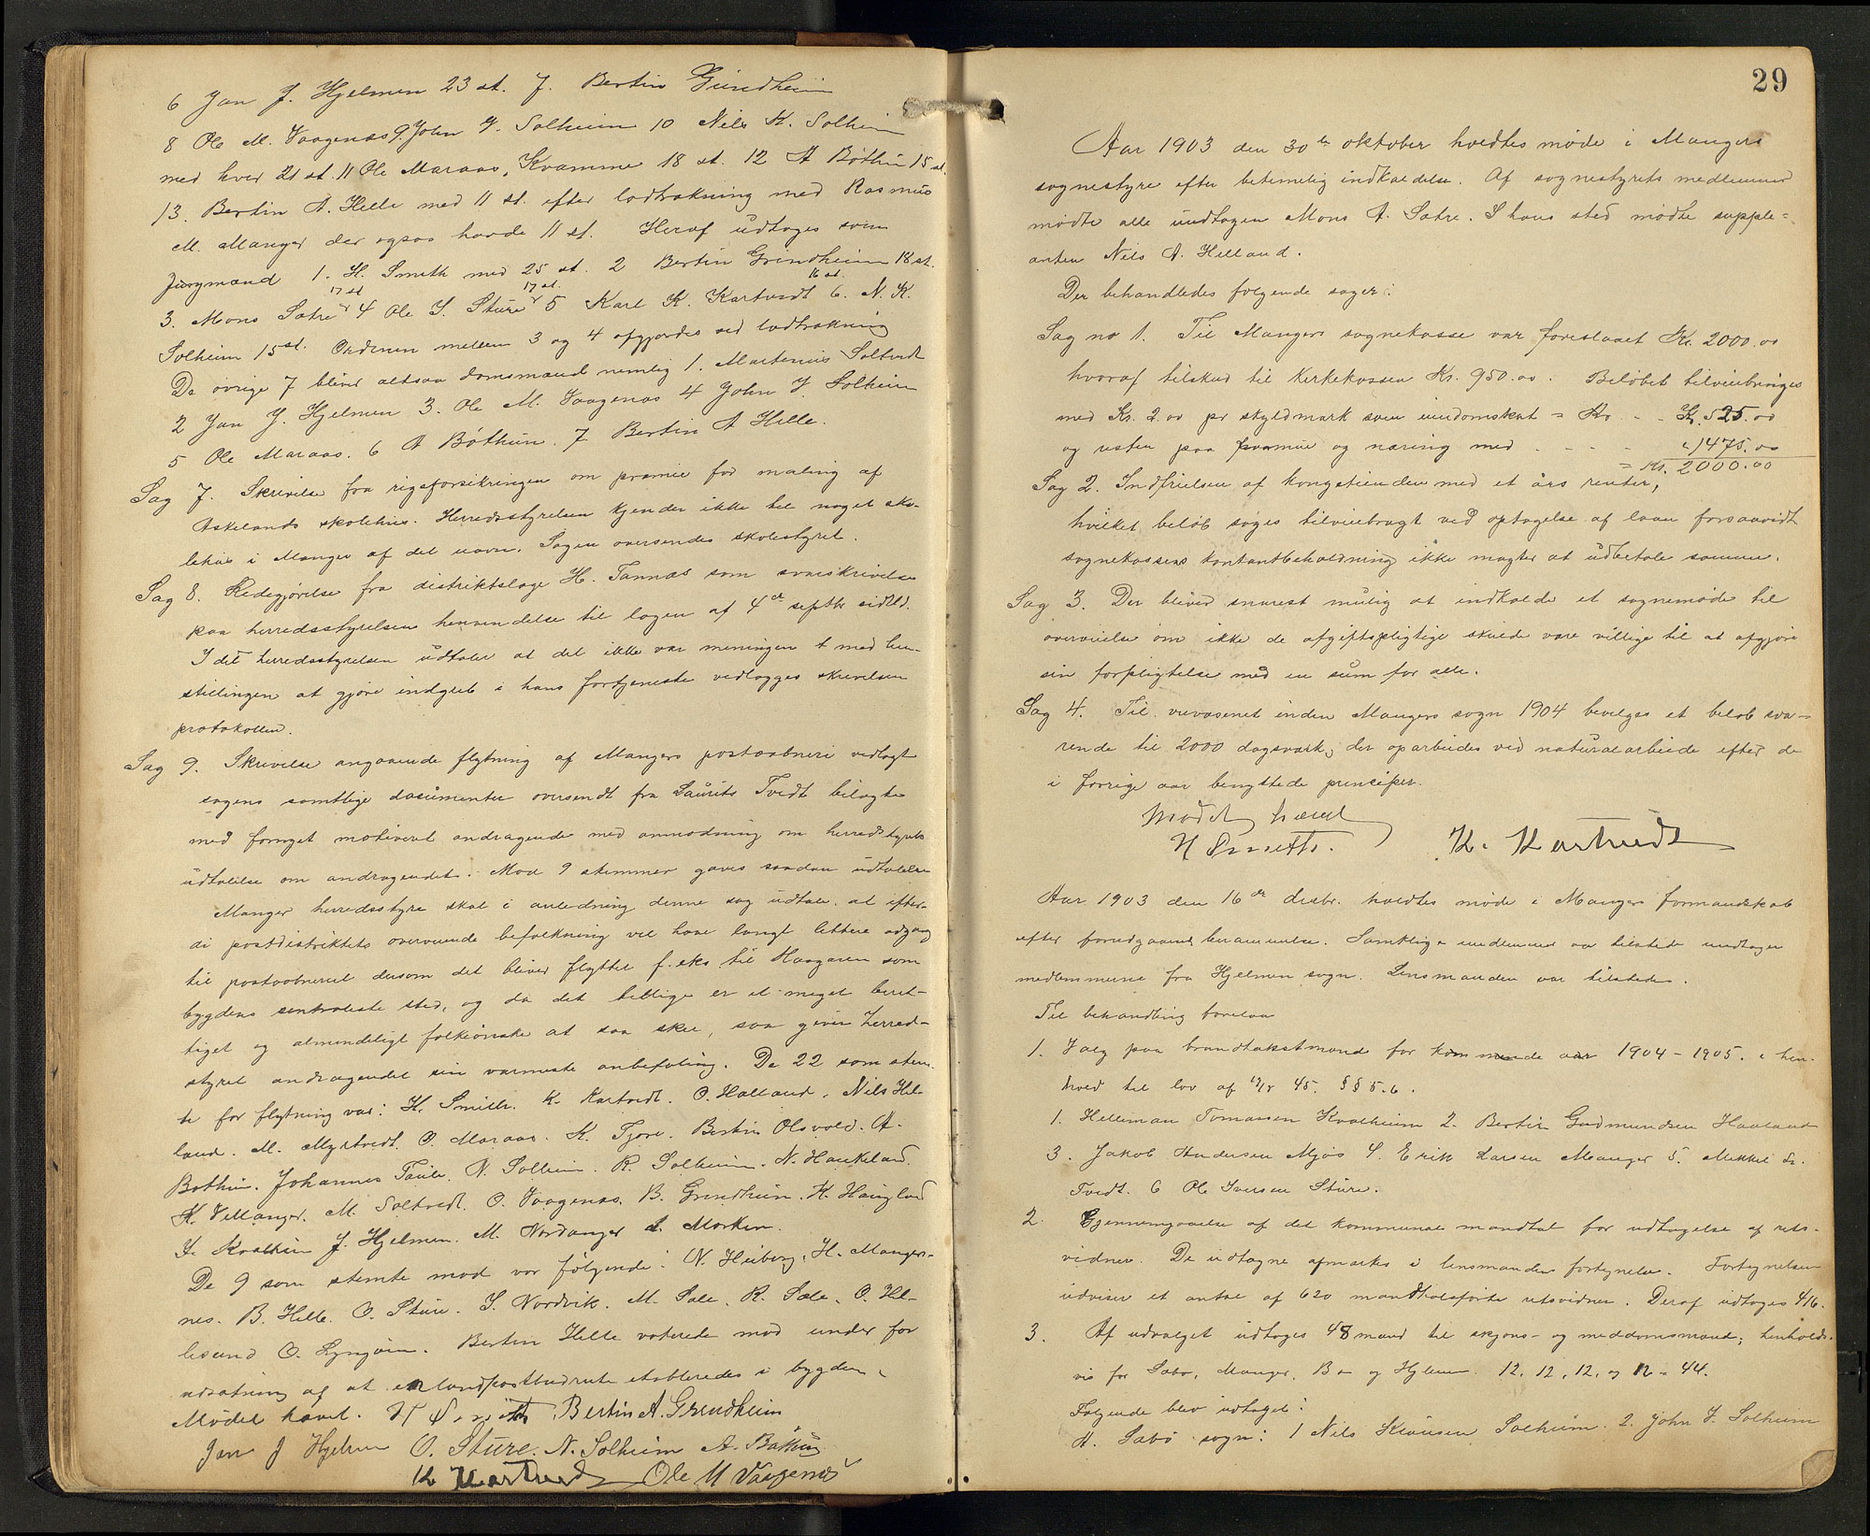 6 Jan J. Hjelmen 23 st. 7. Bertin Grindheim
8 Ole M. Vaagenæs 9. John J. Solheim 10 Nils K. Solheim
med hver 21 st. 11 Ole Maraas, Kvamme 18 st. 12 A Böthun 15 st.
13. Bertin A. Helle med 11 st. efter lodtrækning med Rasmus
M. Manger der ogsaa havde 11 st. Heraf udtoges som
Jurymænd 1. H. Smith med 25 st. 2 Bertin Grindheim 18 st.
17 st 17 st. 16 st.
3. Mons Sætre 4 Ole I. Sture 5 Karl K. Kartvedt 6. N. K.
Solheim 15 st. Ordenen mellem 3 og 4 afgjordes ved lodtrækning
De övrige 7 bliver altsaa domsmænd nemlig 1. Martenius Soltvedt
2 Jan J. Hjelmen 3. Ole M. Vaagenæs 4 John J. Solheim
5 Ole Maraas. 6 A Böthun. 7 Bertin A Helle.
Sag 7. Skrivelse fra rigsforsikringen om præmie for maling af
Askelands skolehus. Herredsstyrelsen kjender ikke til noget sko-
lehus i Manger af det navn. Sagen oversendes skolestyret.
Sag 8. Redegjörelse fra distriktslæge H. Tannæs som svarskrivelse
paa herredsstyrelsens henvendelse til lægen af 4de septbr sidstl.
I det herredsstyrelsen udtaler at det ikke var meningen med hen-
stillingen at gjöre indgreb i hans fortjeneste vedlægges skrivelsen
protokollen.
Sag 9. Skrivelse angaaende flytning af Mangers postaabneri vedlagt
sagens samtlige documenter oversendt fra Laurits Tvedt bilagte
med fornyet motiveret andragende med anmodning om herredsstyrets
udtalelse om andragendet. Mod 9 stemmer gaves saadan udtalelse
Manger herredsstyre skal i anledning denne sag udtale at efter-
di postdistriktets overveiende befolkning vil have langt lettere adgang
til postaabneriet dersom det bliver flyttet f. eks. til Haagaren som
bygdens sentraleste sted, og da det tillige er et meget beret-
tiget og almindeligt folkeönske at saa sker, saa giver herred-
styret andragendet sin varmeste anbefaling. De 22 som stem-
te for flytning var: H. Smith. K. Kartvedt. O. Halland. Nils Hel-
land. M. Myrtvedt. O. Maraas. K. Tjore. Bertin Olsvold. A.
Bothun. Johannes Taule. N. Solheim. R. Solheim. N. Haukeland.
K. Vellanger. M. Soltvedt. O. Vaagenæs. B. Grindheim. K. Haugland
J. Kvalheim J. Hjelmen. M. Nordanger A. Morken.
De 9 som stemte mod var følgende: N. Heiberg. H. Manger-
nes. B. Helle. O. Sture. I. Nordvik. M. Sæle. R. Sæle. O. Hel-
lesund O. Lyngöen. Bertin Helle voterede mod under for
udsætning af at en landpostbudrute etableredes i bygden.
Mödet hævet. H Smith Bertin A. Grindheim
Jan J Hjelmen O. Sture. N. Solheim A. Bøthun
K Kartvedt Ole M Vaagenæs
29
Aar 1903 den 30te oktober holdtes möde i Mangers
sognestyre efter betimelig indkaldelse. Af sognestyrets medlemmer
mødte alle undtagen Mons A. Sætre. I hans sted mødte supple=
anten Nils A. Helland.
Der behandledes følgende sager:
Sag no 1. Til Mangers sognekasse var foreslaaet Kr. 2000.00
hvoraf tilskud til kirkekassen Kr. 950.00. Belöbet tilveiebringes
med Kr. 2.00 pr skyldmark som eiendomsskat = Kr. 525.00
og resten paa formue og næring med - - - " 1475.00
= Kr. 2000.00
Sag 2. Indfrielsen af kongetienden med et års renter,
hvilket belöb söges tilveiebragt ved optagelse af laan forsaavidt
sognekassens kontantbeholdning ikke magter at udbetale samme.
Sag 3. Der bliver snarest mulig at indkalde et sognemöde til
overveielse om ikke de afgiftspligtige skulde være villige til at afgjøre
sin forpligtelse med en sum for alle.
Sag 4. Til veivæsenet inden Mangers sogn 1904 bevilges et beløb sva-
rende til 2000 dagsværk, der oparbeides ved naturalarbeide efter de
i forrige aar benyttede principer.
Mødet hævet
H Smith. K. Kartvedt
Aar 1903 den 16de desbr. holdtes möde i Manger formandskab
efter forudgaaende berammelse. Samtlige medlemmer var tilstede undtagen
medlemmerne fra Hjelmen sogn. Lensmanden var tilstede.
Til behandling forelaa
1. Valg paa brandtakstmænd for kommende aar 1904-1905. i hen-
hold til lov af 45. §§ 5-6.
1. Helleman Tomassen Kvalheim 2. Bertin Gudmundsen Haaland
3. Jakob Andersen Mjøs 4. Erik Larsen Manger 5. Mikkel
Tvedt. 6 Ole Iversen Sture.
2. Gjennemgaaelse af det kommunale mandtal for udtagelse af rets-
vidner. De udtagne afmærkes i lensmandens fortegnelse. Fortegnelsen
udviser et antal af 620 mandtalsførte retsvidner. Deraf udtages 416.
3. Af udvalget udtoges 48 mænd til skjøns- og meddomsmænd; henholds-
vis for Sæbø, Manger, Bø og Hjelmen. 12, 12, 12, og 12 = 44.
Følgende blev udtaget:
A. Sæbö sogn: 1 Nils Klausen Solheim. 2. John J. Solheim